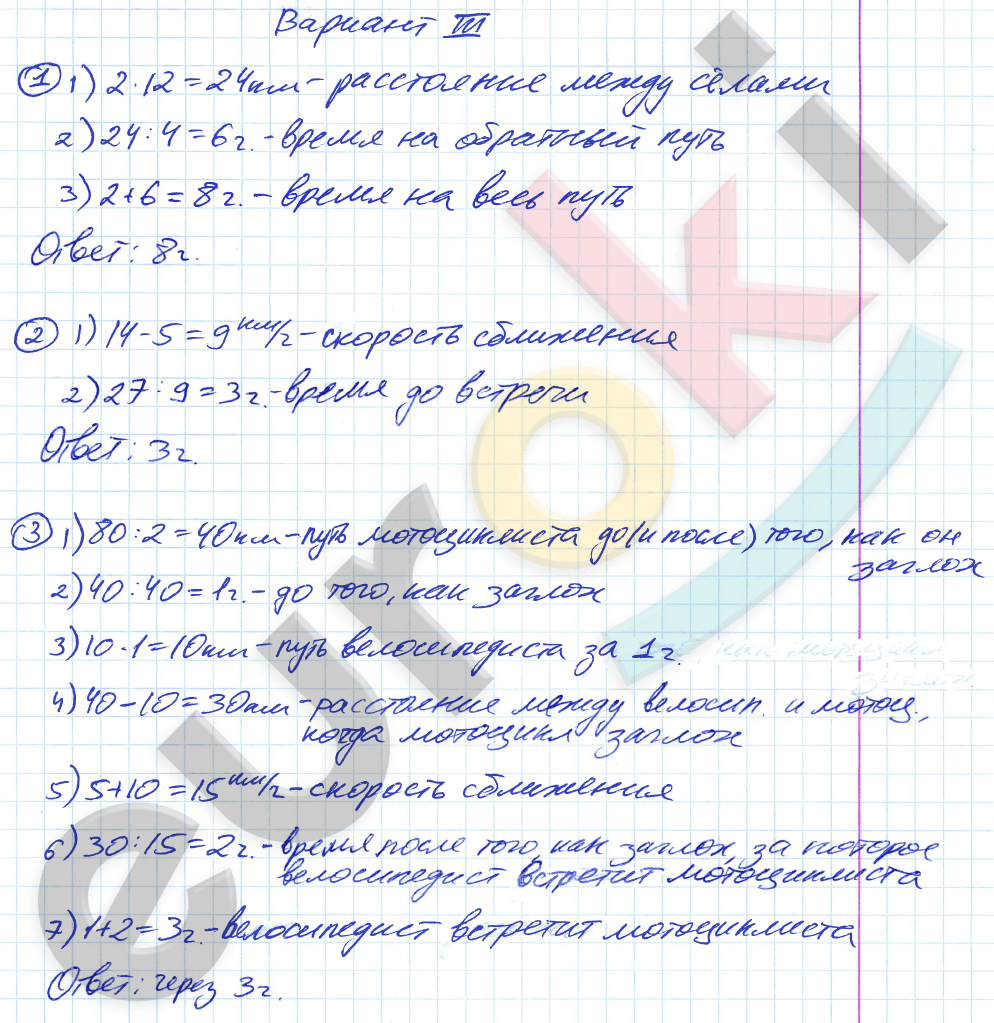 Вариант III
① 1) 2·12=24км - расстояние между сёлами
2) 24:4=6ч. - время на обратный путь
3) 2+6=8ч. - время на весь путь
Ответ: 8ч.
② 1) 14-5=9 км/ч - скорость сближения
2) 27:9=3ч. - время до встречи
Ответ: 3ч.
③ 1) 80:2=40км - путь мотоциклиста до (и после) того, как он
заглох
2) 40:40=1ч. - до того, как заглох
3) 10·1=10км - путь велосипедиста за 1ч.
4) 40-10=30км - расстояние между велосип. и мотоц.,
когда мотоцикл заглох
5) 5+10=15 км/ч - скорость сближения
6) 30:15=2ч. - время после того, как заглох, за которое
велосипедист встретит мотоциклиста
7) 1+2=3ч. - велосипедист встретит мотоциклиста
Ответ: через 3ч.
euroki